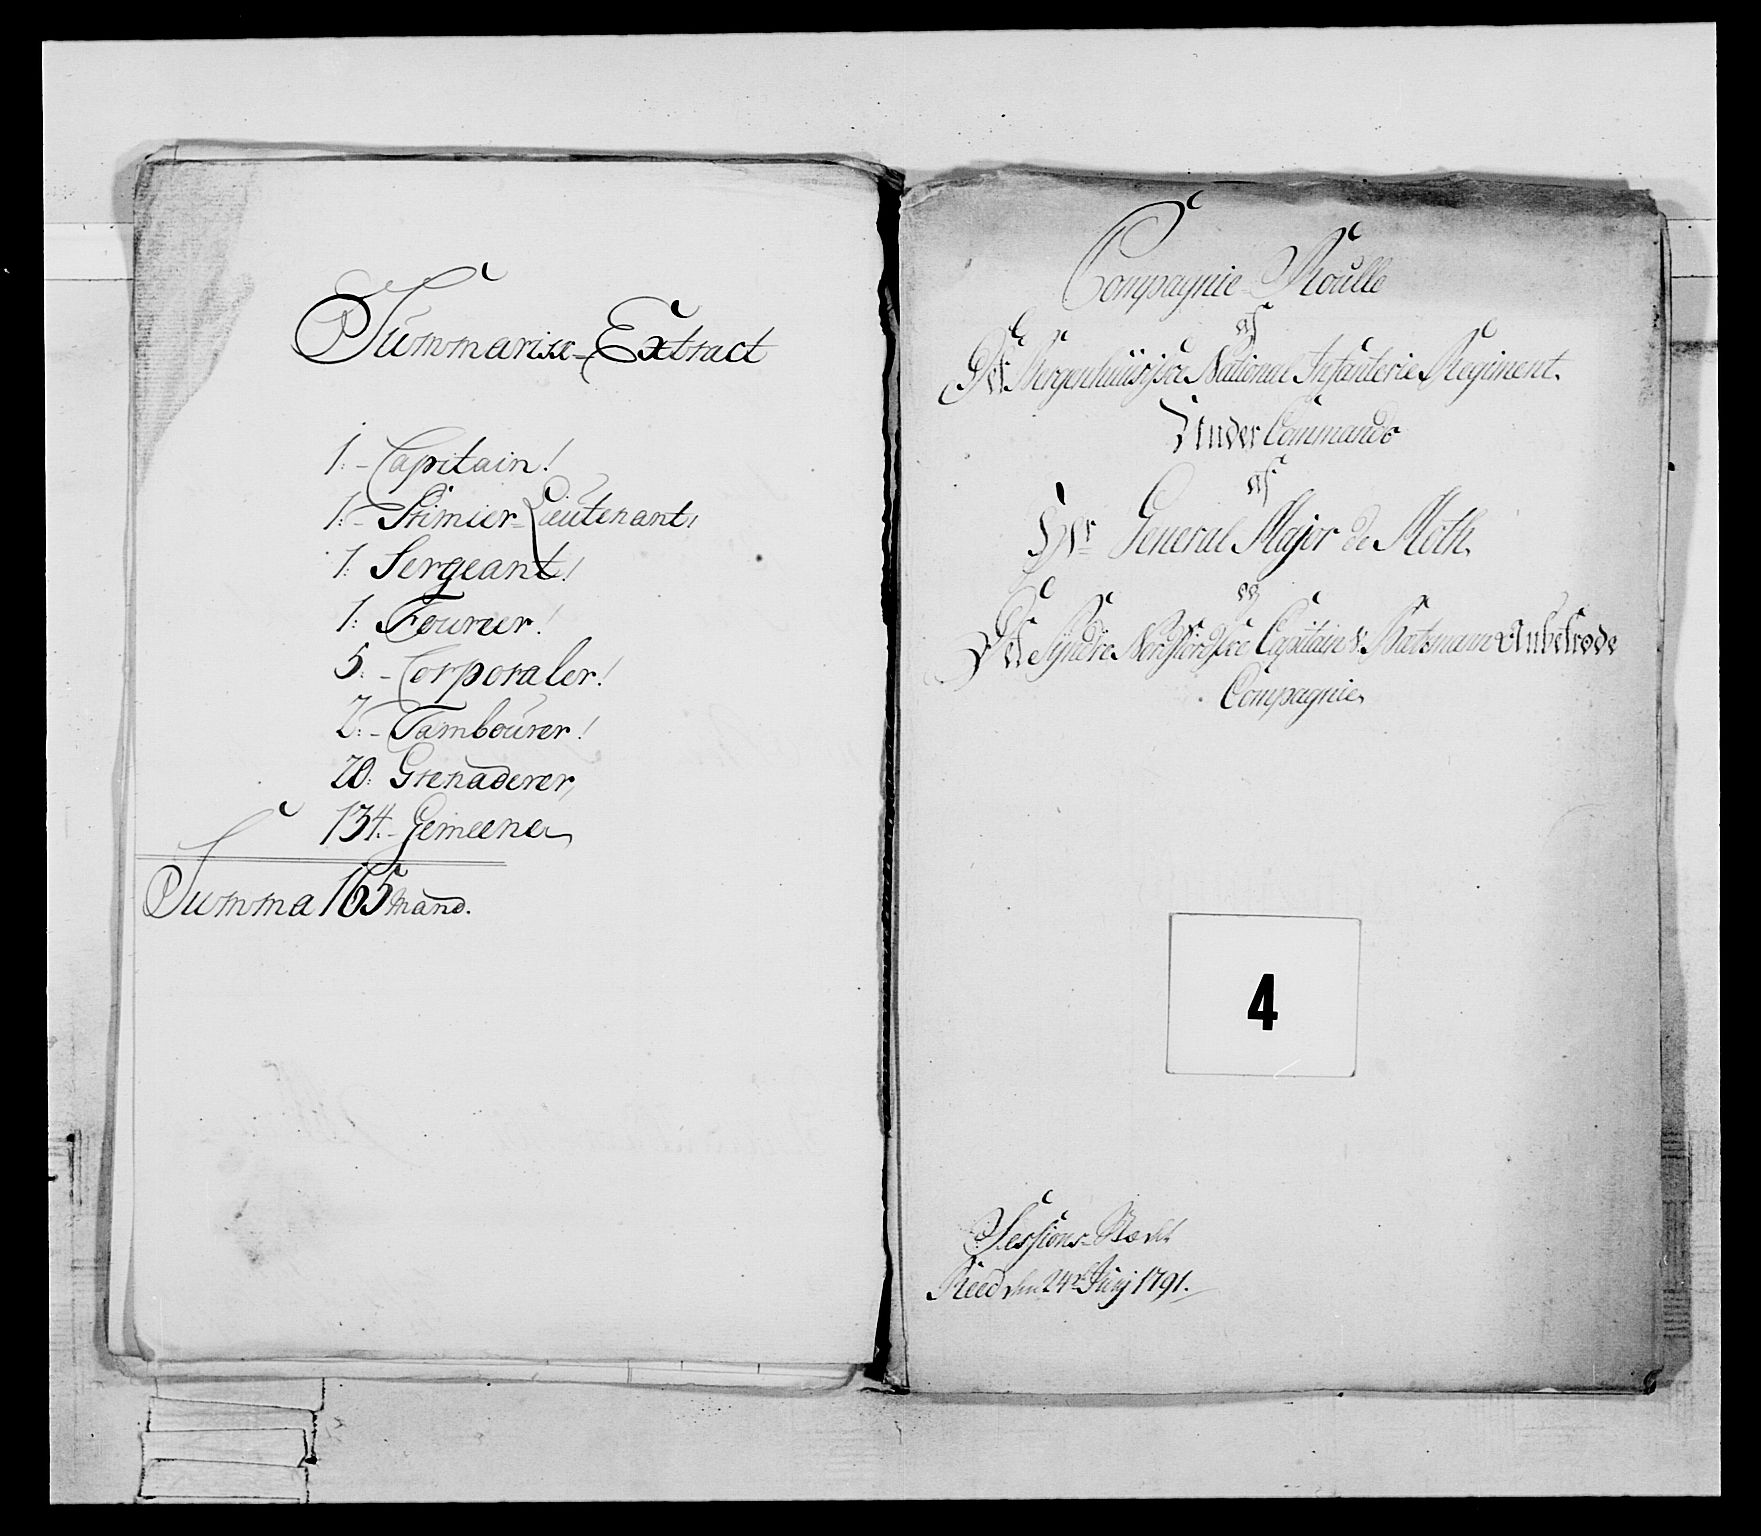 Summarisk-Extract
1:- Capitain!
1:- Premier-Lieutenant!
1: Sergeant!
1: Fourier!
5:- Corporaler!
2:- Tambourer!
20: Grenaderer,
134:- Gemeene
Summa 165 Mand.
Compagnie-Roulle
af
Det Bergenhuusiske National Infanterie Regiment.
Under Commando
af
Hr General Major de Moth.
og
Det Søndre Capitain v: Anbetroede
Compagnie.
4
Sessions-
den 24de Junj 1791.